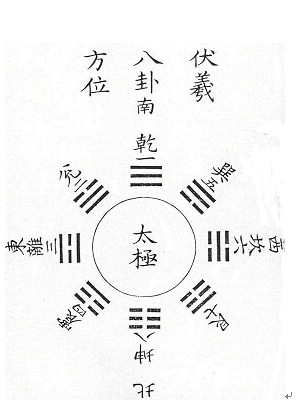 伏羲
八卦
方位
南
乾一
兌二
巽五
東離三
太極
西坎六
震四
艮七
坤八
北